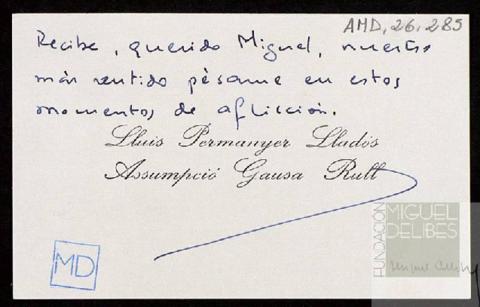 AMD, 26, 285
Recibe, querido Miguel, nuestro
más sentido pésame en estos
momentos de aflicción.
Lluís Permanyer Lladós
Assumpció Gausa Rull
MD
FUNDACIÓN
MIGUEL
DELIBES
Miguel Delibes